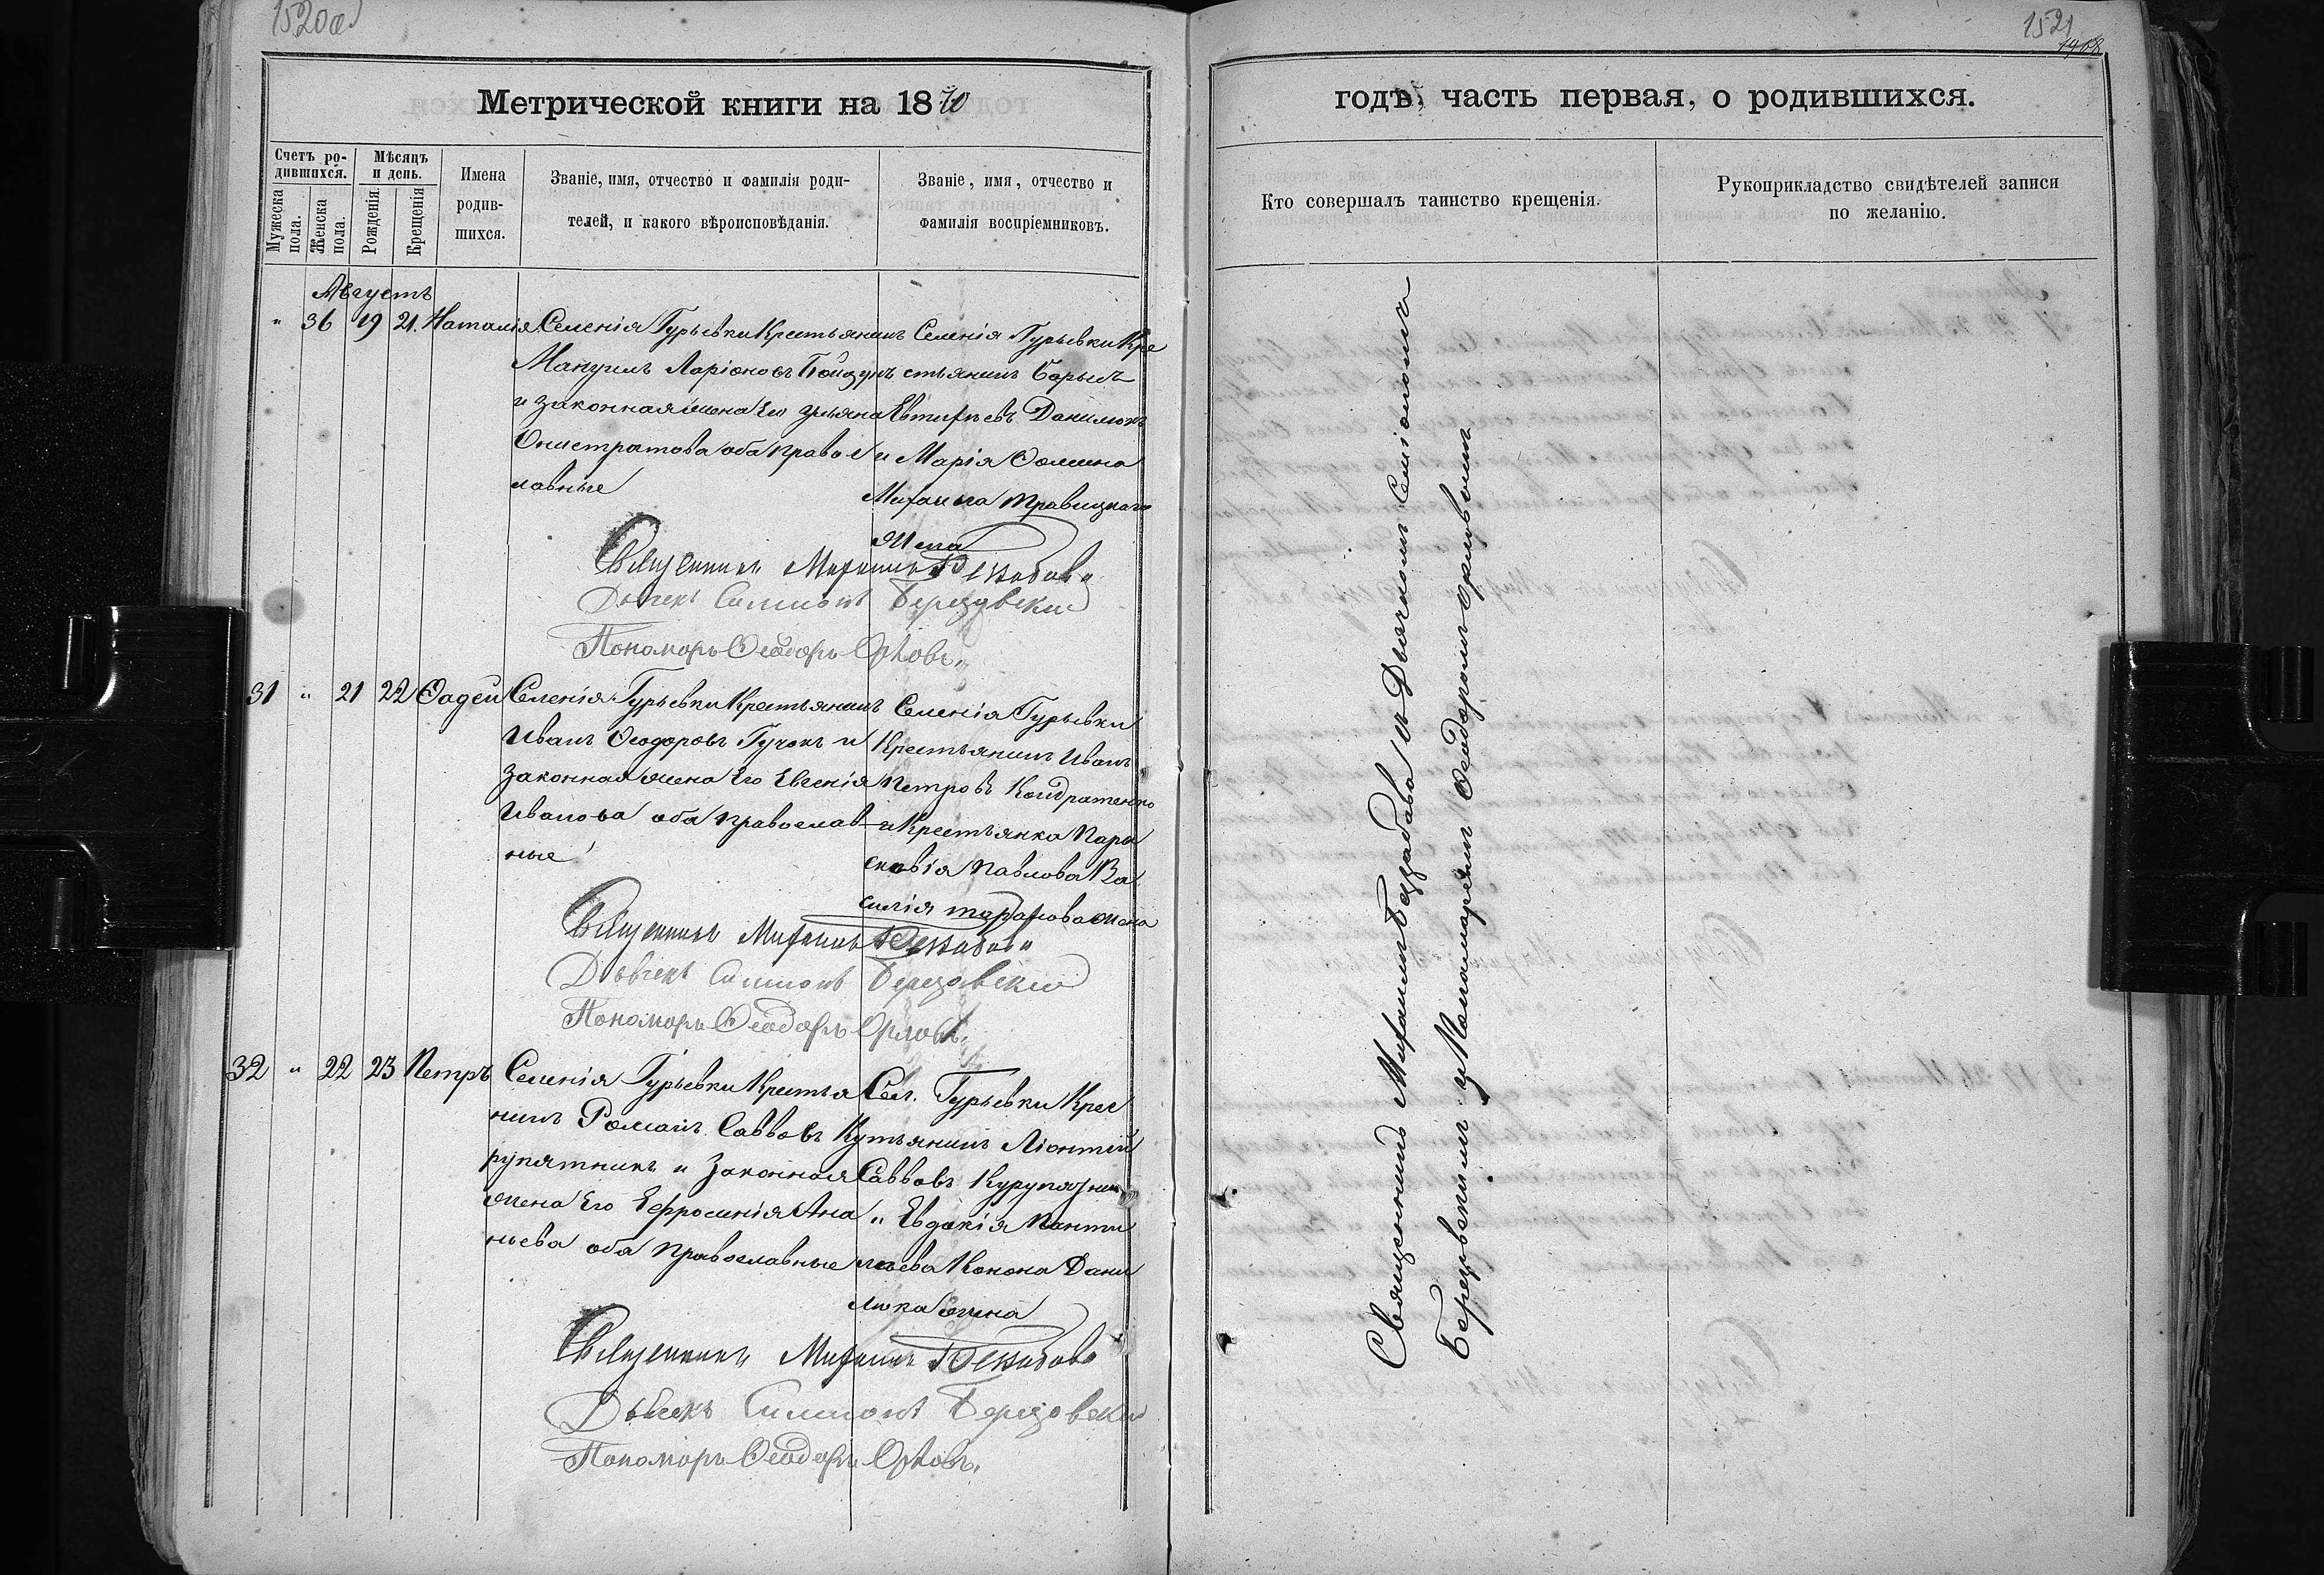 1520об
Метрической книги на 1870
Счетъ ро-
дившихся.
Мужеска
пола.
Женска
пола.
Мѣсяцъ
и день.
Рожденія.
Крещенія
Имена
родив-
шихся.
Званіе, имя, отчество и фамилія роди-
телей, и какого вѣроисповѣданія.
Званіе, имя, отчество и
фамилія воспріемниковъ.
Августъ
" 36 19 21. Наталія
Селенія Гурьевки Крестьянинъ
Мануилъ Ларіоновъ
и законная жена Его Ульяна
Онистратова оба право
лавные
Селенія Гурьевки Кре
стьянинъ
Евтифѣевъ Данилюкъ
и Марія Фомина
Михаила Травицкаго
жена
Священникъ Михаилъ
Дьячекъ Симеонъ Березовскій
Пономарь Ѳеодоръ Орловъ.
31 " 21 22 Ѳадей
Селенія Гурьевки Крестьянинъ
Иванъ Ѳеодоровъ Гучокъ и
законная жена Его Евгенія
Иванова оба православ
ные
Селенія Гурьевки
Крестьянинъ Иванъ
Петровъ Кондратенко
и Крестьянка Пара
сковія Павлова Ва
силія жена
Священникъ Михаилъ
Дьячекъ Симеонъ Березовскій
Пономарь Ѳеодоръ Орловъ.
32 " 22 23 Петръ
Селенія Гурьевки Крестья
нинъ Романъ Саввовъ Ку
рупятникъ и законная
жена Его Ефросинія Ана
ньева оба православные
Сел. Гурьевки Крес
тьянинъ Ліонтій
Саввовъ Курупятник
" Евдокія Панти
лѣева Конона Дани
люка жена
Священникъ Михаилъ
Дьячекъ Симеонъ Березовскій
Пономарь Ѳеодоръ Орловъ.
1521
годъ, часть первая, о родившихся.
Кто совершалъ таинство крещенія.
Рукоприкладство свидѣтелей записи
по желанію.
Священникъ Михаилъ съ Дьячкомъ Симіономъ
Березовскимъ и Пономаремъ Ѳеодоромъ Орловымъ